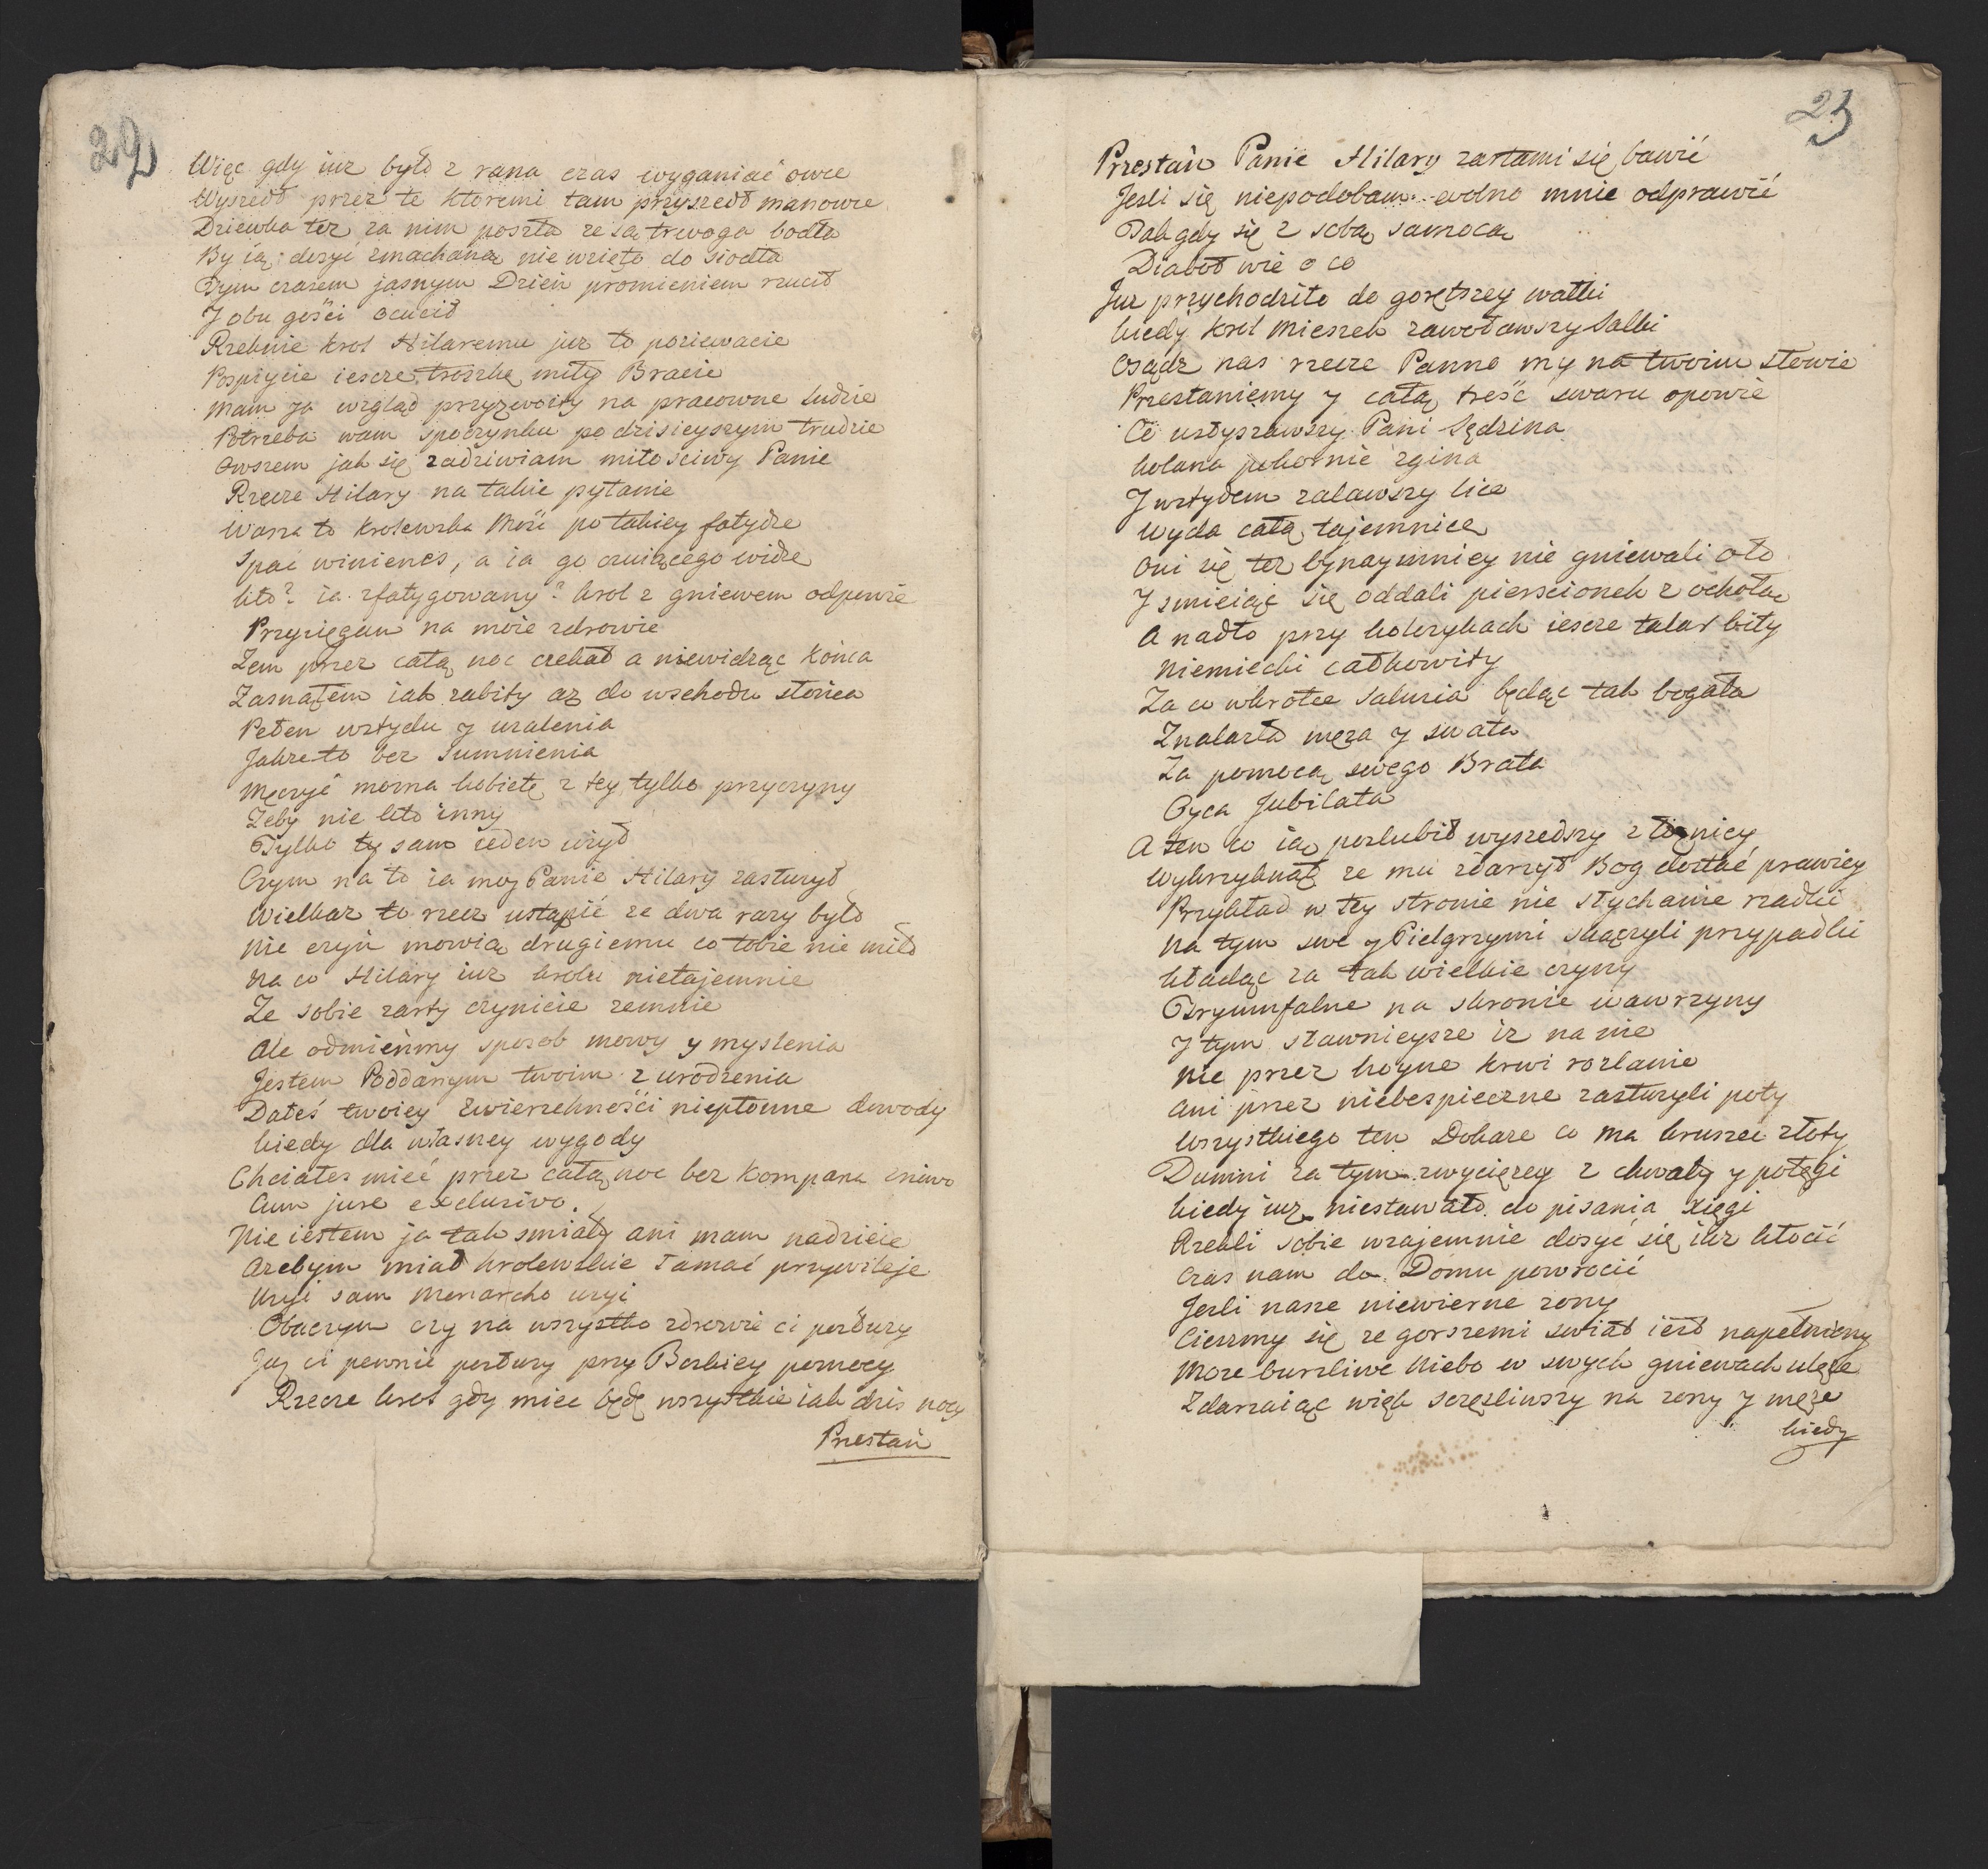 22
Więc gdy iuz było z rana czas wyganiać owce
Wyszedł przez te ktoremi tam przyszedł manowce
Dziewka tez za nim poszła ze są trwoga bodła
By ią dosyć zmachaną nie wzięto do siodła
Tym czasem jasnym Dzien promieniem rzucił
J obu gości ocucił
Rzeknie krol Hilaremu juz to poziewacie
Pospiycie iescze troszkę miły Bracie
Mam ja wzgląd przyzwoity na pracowne ludzie
Potrzeba wam spoczynku po dzisieyszym trudzie
Owszem jak się zadziwiam miłosciwy Panie
Rzecze Hilary na takie pytanie
Wasza to krolewska Mość po takiey fatydze
Spać winienes, a ia go czuiącego widze
kto? ia zfatygowany? krol z gniewem odpowie
Przysięgam na moie zdrowie
Zem przez całą noc czekał a niewidząc konca
Zasnąłem iak zabity az do wschodu słonca
Pełen wstydu y uzalenia
Jakze to bez sumnienia
Męczyć mozna kobietę z tey tylko przyczyny
Zeby nie kto inny
Tylko ty sam ieden uzył
Czym na to ia moy Panie Hilary zasłuzył
Wielkaz to rzecz ustąpić ze dwa razy było
Nie czyn mowią drugiemu co tobie nie miło
Na co Hilary iuz krolu nietajemnie
Ze sobie zarty czynicie zemnie
Ale odmieńmy sposob mowy y myslenia
Jestem Poddanym twoim z urodzenia
Dałeś twoiey zwierzchności niepłonne dowody
kiedy dla własney wygody
Chciałes mieć przez całą noc bez kompana zniwo
Cum jure exclusivo.
Nie iestem ja tak smiały ani mam nadzieie
Azebym miał krolewskie łamać przywileje
Uzyi sam Monarcho uzyi
Obaczym czy na wszystko zdrowie ci posłuzy
Juz ci pewnie posłuzy przy Boskiey pomocy
Rzecze krol gdy miec będę wszystkie iak dzis nocy
Przestań
23
Przestań Panie Hilary zartami się bawić
Jesli się niepodobam wolno mnie odprawić
Tak gdy się z sobą samocą
Diabeł wie o co
Juz przychodziło do gorętszey walki
kiedy krol Mieszek zawoławszy Salki
Osądz nas rzecze Panno my na twoim słowie
Przestaniemy y całą treść swaru opowie
Co usłyszawszy Pani Sędzina
kolana pokornie zgina
J wstydem zalawszy lice
Wyda całą tajemnicę
Oni się tez bynaymniey nie gniewali oto
J smieiąc się oddali pierscionek z ochotą
A nadto przy kolczykach iescze talar bity
Niemiecki całkowity
Za co wkrotce Salusia będąc tak bogata
Znalazła męza y swata
Za pomocą swego Brata
Oyca Jubilata
A ten co ią poslubił wyszedszy z łoznicy
Wykrzyknął ze mu zdarzył Bog dostać prawicy
Przykład w tey stronie nie słychanie rzadki
Na tym swe y Pielgrzymi skączyli przypadki
kładąc za tak wielkie czyny
Tryumfalne na skronie wawrzyny
J tym sławnieysze iz na nie
Nie przez hoyne krwi rozlanie
Ani przez niebespieczne zasłuzyli poty
Wszystkiego ten Dokaze co ma kruszec złoty
Dumni za tym zwycięzcy z chwały y potęgi
kiedy iuz niestawało do pisania Xięgi
Rzekli sobie wzajemnie dosyć się iuz kłocić
Czas nam do Domu powrocić
Jesli nasze niewierne zony
Cieszmy się ze gorszemi swiat iest napełniony
Moze burzliwe Niebo w swych gniewach ulęze
Zdarzaiąc więk sczęśliwszy na zony y męze
kiedy